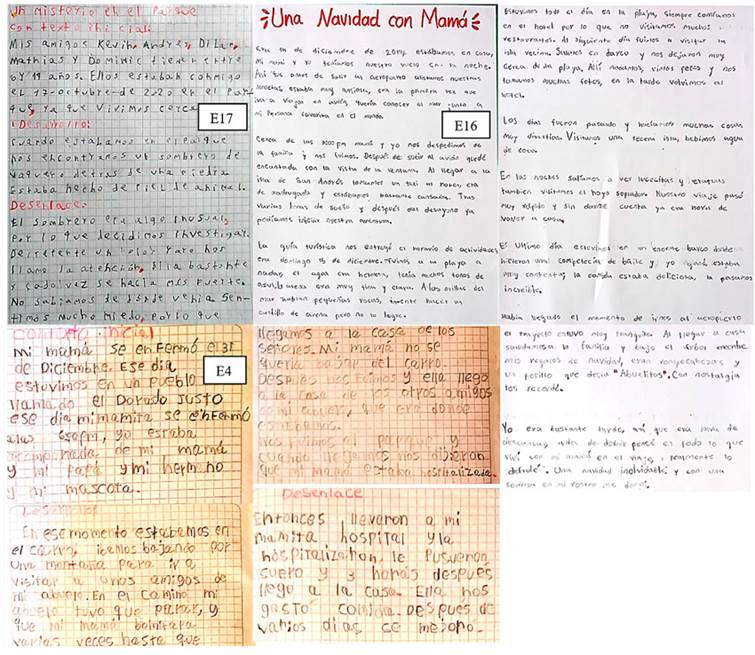 Un misterio en el Parque
contexto inicial:
Mis amigos Kevin, Andres, Dilan,
Mathias y Dominic tienen entre
6 y 14 años. Ellos estaban conmigo
el 17-octubre-de 2020 en el Par
que, ya que vivimos cerca
E17
Desarrollo:
Cuando estabamos en el parque
nos encontramos un sombrero de
vaquero detras de una piedra
Estaba hecho de piel de animal.
Desenlace:
El sombrero era algo inusual,
por lo que decidimos investigar.
Derepente un olor raro nos
llamo la atención, olia bastante
y cada vez se hacia más fuerte.
No sabiamos de donde venia sen-
timos mucho miedo, por lo que
¡Una Navidad con Mamá!
Era un de diciembre de 2019, estábamos en casa,
mi mami y yo teníamos nuestro vuelo en la noche.
Así que antes de salir al aeropuerto alistamos nuestras
maletas estaba muy ansiosa, era la primera vez que
iba a viajar en avión, quería conocer el mar junto a
mi persona favorita en el mundo.
E16
Cerca de las pm mamá y yo nos despedimos de
la familia y nos fuimos. Después de subir al avión quedé
encantada con la vista de la ventana. Al llegar a la
isla de San Andrés tomamos un taxi al hotel, era
de madrugada y estábamos bastante cansadas. Tras
varias horas de sueño y después del desayuno ya
podíamos iniciar nuestra aventura.
La guía turística nos entregó el horario de actividades
era domingo de diciembre. Fuimos a la playa a
nadar, el agua era hermosa, tenía muchos tonos de
azul, la arena era muy fina y clara. A las orillas del
mar habían pequeñas rocas, intenté hacer un
castillo de arena pero no lo logré.
Estuvimos todo el día en la playa, siempre comíamos
en el hotel por lo que no visitamos muchos
restaurantes. Al siguiente día fuimos a visitar la
isla vecina. Salimos en barco y nos dejaron muy
cerca de la playa. Allí nadamos, vimos peces y nos
tomamos muchas fotos, en la tarde volvimos al
hotel.
Los días fueron pasando y hacíamos muchas cosas
muy divertidas. Visitamos una tercera isla, bebimos agua
de coco.
En las noches salíamos a ver lucecitas y
también visitamos el hoyo soplador. Nuestro viaje pasó
muy rápido y sin darme cuenta ya era hora de
volver a casa.
El último día estuvimos en un enorme barco donde
hicieron una competencia de baile y yo
muy contentas, la comida estaba deliciosa, la pasamos
increíble.
Había llegado el momento de irnos al aeropuerto
el trayecto estuvo muy tranquilo. Al llegar a casa
saludamos a la familia y bajo el árbol encontré
mis regalos de navidad, eran rompecabezas y
un pocillo que decía "Abuelitos". Con nostalgia
los recordé.
Ya era bastante tarde, así que era hora de
descansar, antes de dormir pensé en todo lo que
viví con mi mamá en el viaje, realmente lo
disfruté. Una navidad inolvidable y con una
sonrisa en mi rostro me dormí.
contexto inicial
Mi mamá se enfermó el 31
de Diciembre. Ese dia
estuvimos en un pueblo
llamado el Dorado Justo
ese dia mi mamita se enfermó
a las pm, yo estaba
acompañada de mi mamá
y mi papá y mi hermano
y mi mascota.
E4
Desarrollo
En ese momento estabamos en
el carro, ibemos bajando por
una montaña para ir a
visitar a unos amigos de
mi abuelo. En el camino mi
abuelo tuvo que parar, y
que mi mamá bomitara
varias veces hasta que
llegamos a la casa de los
señores. Mi mamá no se
queria bajar del carro.
Despues nos fuimos y ella llego
a la casa de los otros amigos
de mi abuelo, que era donde
estabamos.
Nos fuimos al parque y
cuando llegamos nos dijeron
que mi mamá estaba hospitalizada.
Desenlace
Entonces llevaron a mi
mamita hospital y la
hospitalizaron, le pusueron
suero y 3 horas despues
llego a la casa. Ella nos
gastó comida. Despues de
varios dias se mejoro.